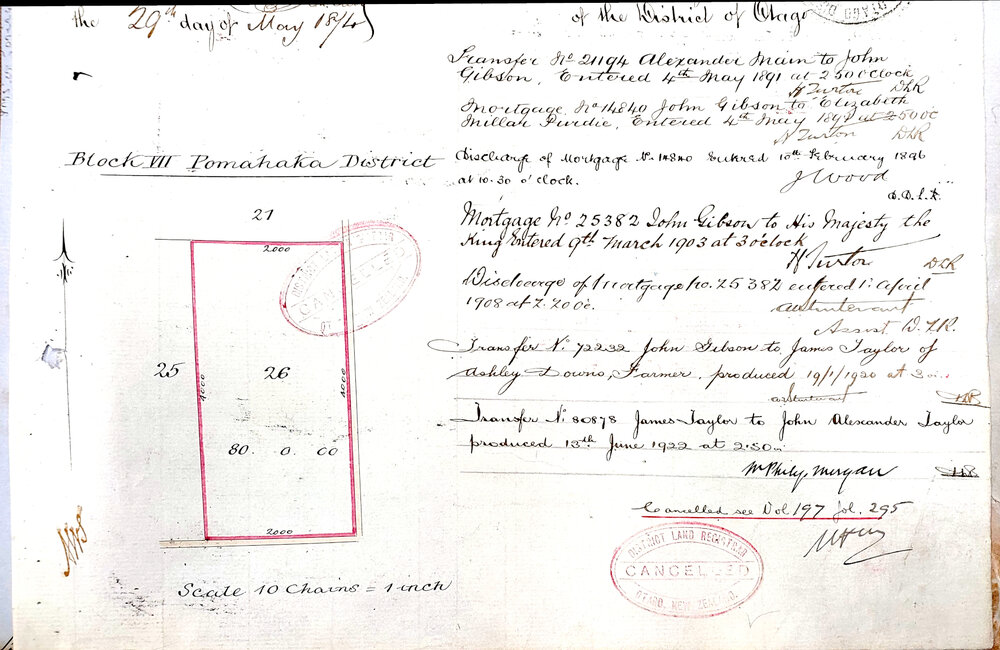 the 29th day of May 1874
of the District of Otago
Transfer No 21194 Alexander Main to John
Gibson, Entered 4th May 1891 at 2 50 o'clock
H Turton DLR
Mortgage No 14840 John Gibson to Elizabeth
Millar Purdie, Entered 4th May 1891 at 2 50 oc
H Turton DLR
Discharge of Mortgage No 14840 Entered 10th February 1896
at 10.30 o'clock.
J Wood
D.L.R.
Mortgage No 25382 John Gibson to His Majesty the
King Entered 9th March 1903 at 3 oclock
H Turton DLR
Discharge of Mortgage no. 25382 entered 1st April
1908 at 2.20 oc.
Assist D.L.R.
Transfer No 72232 John Gibson to James Taylor of
Ashley Downs, Farmer, produced 19/1/1920 at 3
Transfer No 80878 James Taylor to John Alexander Taylor
produced 13th June 1922 at 2.50
Cancelled see Vol 197 fol. 295
DISTRICT LAND REGISTRAR
CANCELLED
OTAGO, NEW ZEALAND.
Block VII Pomahaka District
21
2000
CANCELLED
25
4000
26
4000
80. 0. 00
2000
Scale 10 Chains = 1 inch